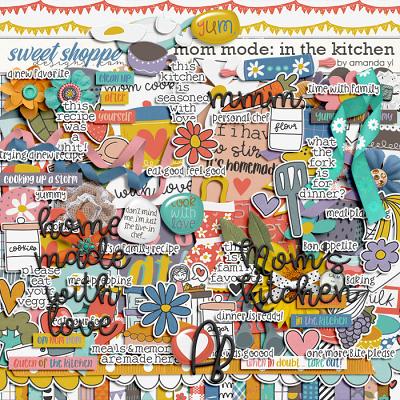 yum
sweet shoppe
mom mode: in the kitchen
by amanda yl
a new favorite
clean up
after
yourself
this
recipe
was
a
hit!
this
kitchen
is
seasoned
with
love
mmm
personal chef
time with family
flour
if i have
to stir
it's homemade
what
the
fork
is
for
dinner?
trying a new recipe
cooking up a storm
yummy
eat good feel good
with love
cook
with
love
don't
mind me,
i'm just
the live-in
chef
meal plan
home
made
with
love
cookies
it's a family recipe
mom's
kitchen
bon appetite
please
eat
your
veggies
meal prepping
this
is a
family
favorite
baking
milk
dinner is ready!
in the kitchen
om nom nom
queen of the kitchen
meals & memories
are made here
so goood
when in doubt... take out!
one more bite please